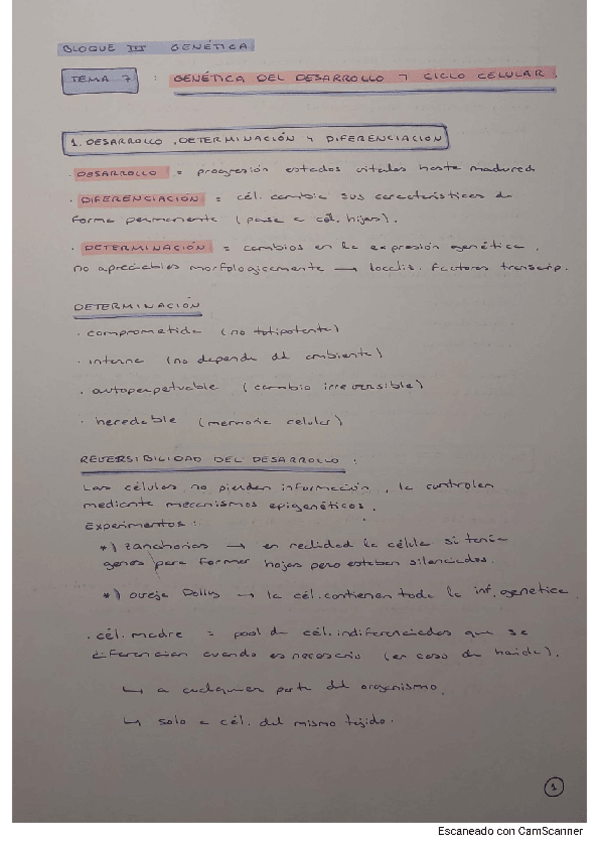 BLOQUE III GENÉTICA
TEMA 7 : GENÉTICA DEL DESARROLLO Y CICLO CELULAR.
1. DESARROLLO, DETERMINACIÓN Y DIFERENCIACIÓN
· DESARROLLO = progresión estados vitales hasta madurez
· DIFERENCIACIÓN = cél. cambia sus características de
forma permanente (pasa a cél. hijas).
· DETERMINACIÓN = cambios en la expresión genética,
no apreciables morfologicamente → localiz. factores transcrip.
DETERMINACIÓN
· comprometida (no totipotente)
· interna (no depende del ambiente)
· autoperpetuable (cambio irreversible)
· heredable (memoria celular)
REVERSIBILIDAD DEL DESARROLLO.
Las células no pierden información, la controlan
mediante mecanismos epigenéticos.
Experimentos:
*) zanahorias → en realidad la célula si tenía
genes para formar hojas pero estaban silenciados.
*) oveja Dolly → la cél. contienen toda la inf. genetica
· cél. madre = pool de cél. indiferenciadas que se
diferencian cuando es necesario (en caso de herida).
↳ a cualquier parte del organismo.
↳ solo a cél. del mismo tejido.
1
Escaneado con CamScanner